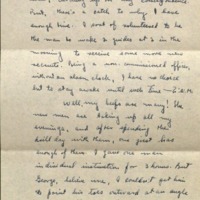 But, there's a catch to why I have
enough time. I sort of volunteered to be
the man to wake 2 guides at 2 in the
morning to receive some more new
recruits. Being a non-commissioned officer,
without an alarm clock, I have no choice
but to stay awake until well time - 2 A.M.
Well, my helps are many! The
new men are taking up all my
evenings, and after spending the
hold day with them, one just has
enough of them. I gave one man
individual instruction for 2 hours. But
George, believe me, I couldn't get him
to point his toes outward at an angle